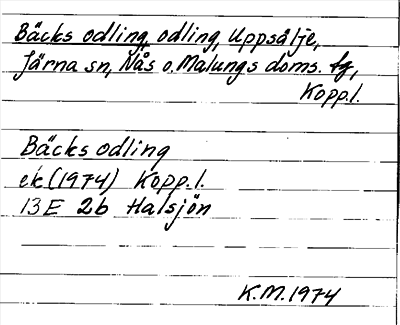 Bäcks odling, odling, Uppsälje,
Järna sn, Nås o. Malungs doms. tg,
Kopp.l.
Bäcks odling
ek (1974) Kopp.l.
13E 2b Halsjön
K.M. 1974